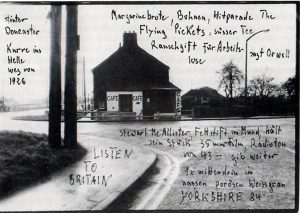 Hinter
Doncaster
Kurve ins
Helle
weg von
1926
Margarinebrote, Bohnen, Hitparade The
Flying Pickets, süsser Tee
Rauschgift für Arbeits-
lose
sagt Orwell
CAFE
CAFE
Stewart McAllister, Fettstift im Mund, hält
sein Stück 35 mm Film, Radioton
von 43 — gib weiter
LISTEN
TO
BRITAIN
mittendrin im
nassen porösen Wasser an
YORKSHIRE 84